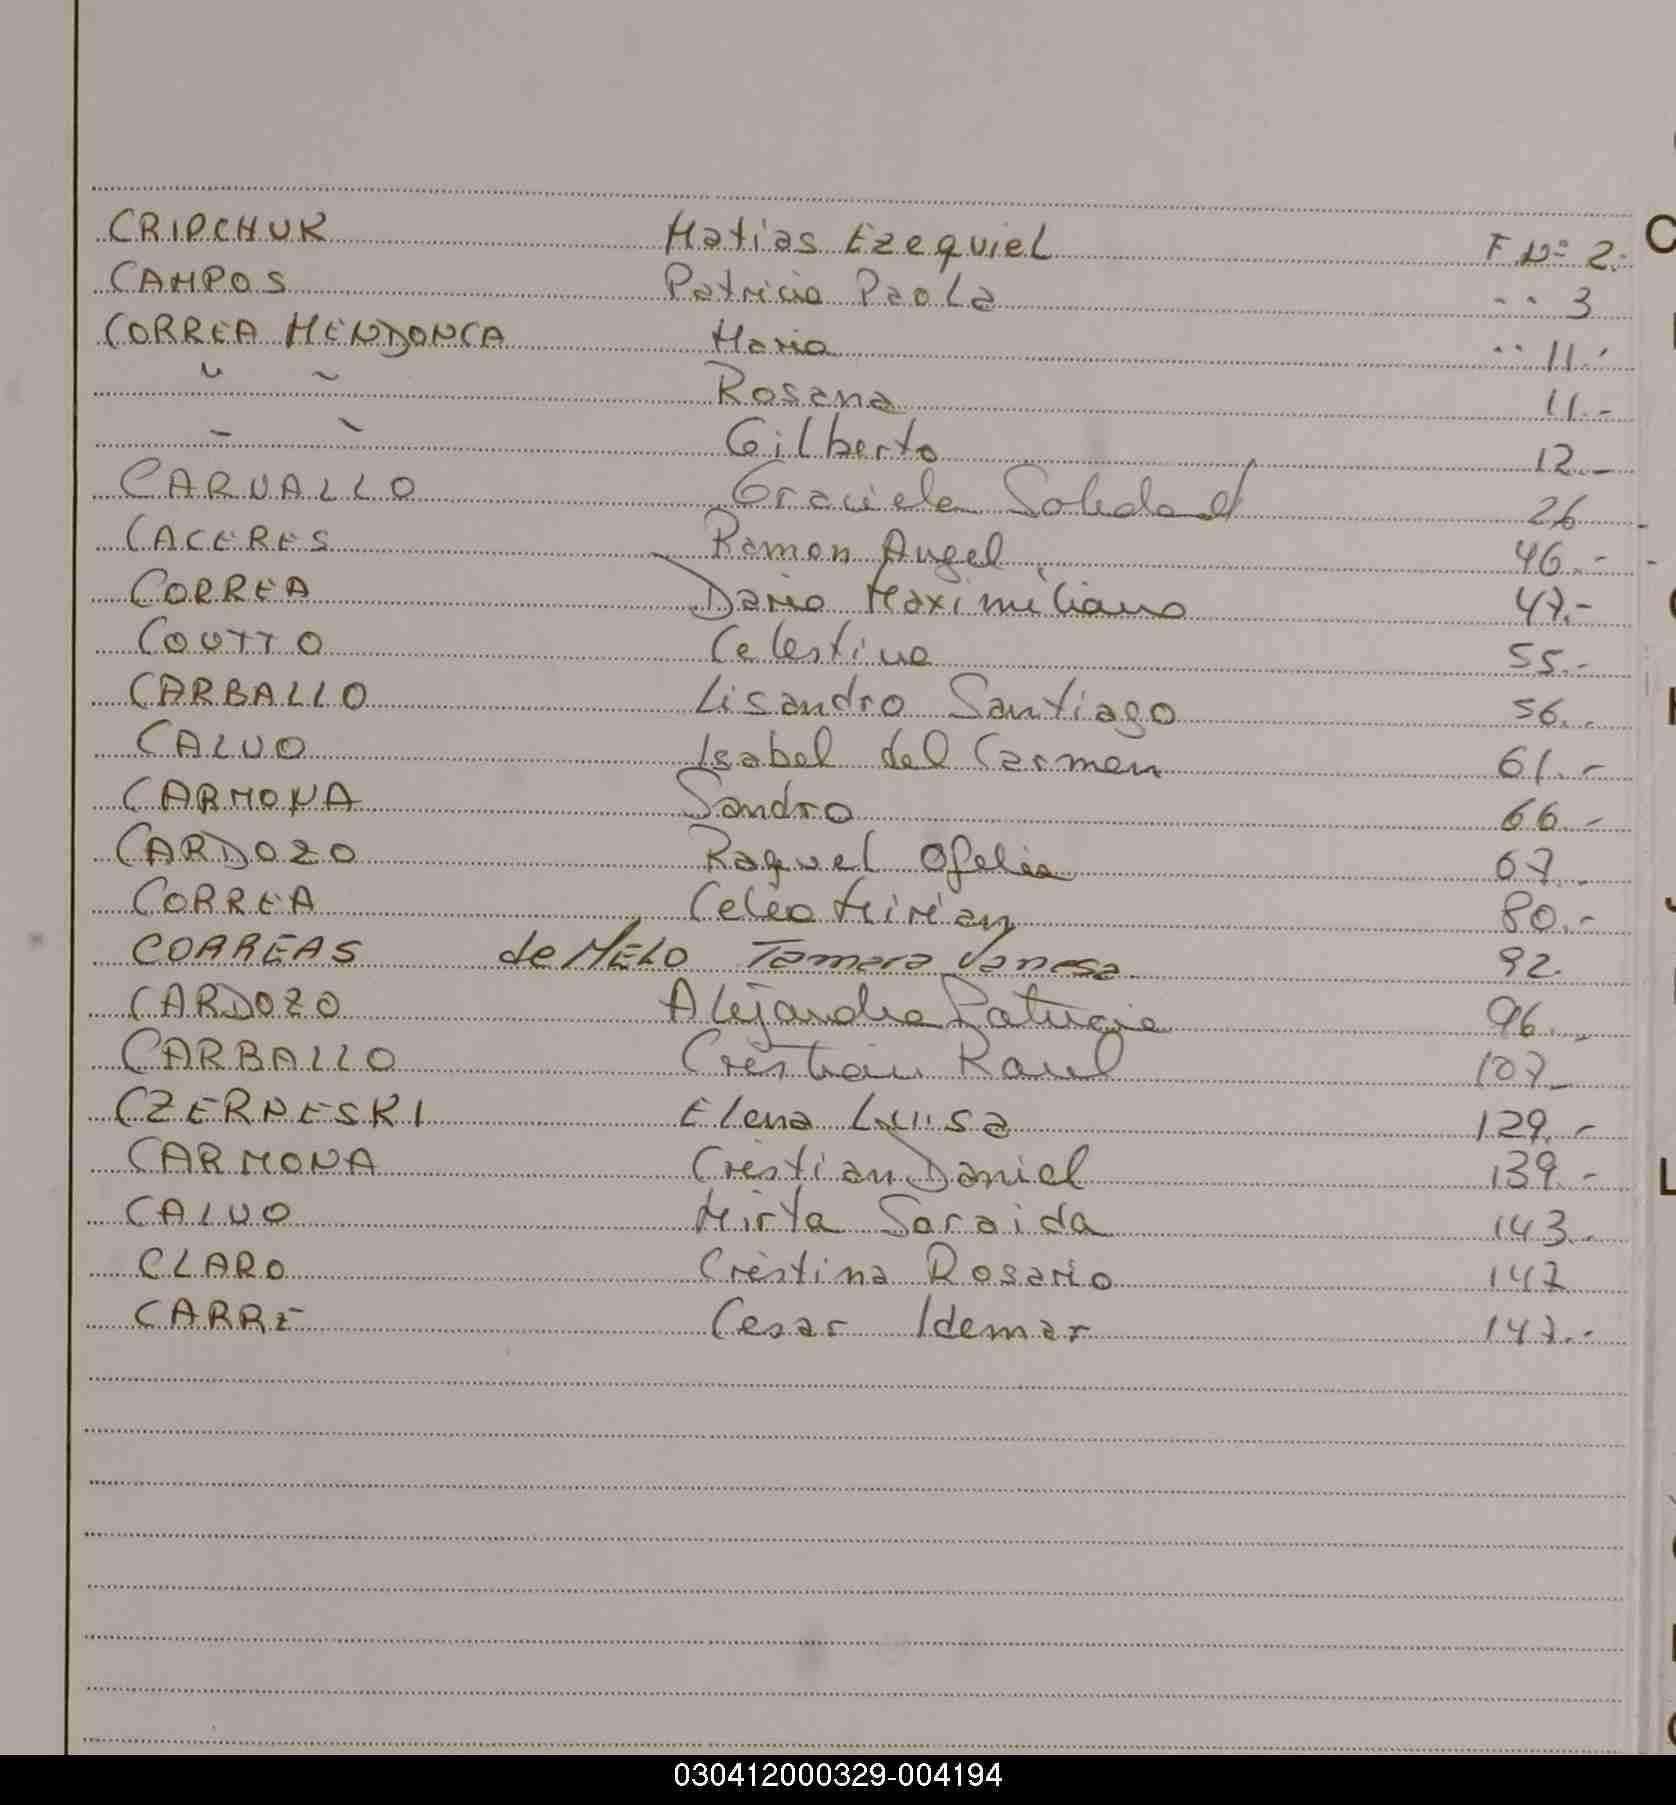 CRIPCHUK Matias Ezequiel F Nº 2.-
CAMPOS Patricia Paola " " 3
CORREA MENDONCA Maria " " 11.-
" " Rosana 11.-
" " Gilberto 12.-
CARVALLO Graciela Soledad 26
CACERES Ramon Angel 46.-
CORREA Dario Maximiliano 47.-
COUTTO Celestino 55.-
CARBALLO Lisandro Santiago 56.-
CALVO Isabel del Carmen 61.-
CARMONA Sandro 66.-
CARDOZO Raquel Ofelia 67.-
CORREA Celia Mirian 80.-
CORREAS de MELO Tamara Vanesa 92.
CARDOZO Alejandra Patricia 96.-
CARBALLO Cristian Raul 107.-
CZERNESKI Elena Luisa 129.-
CARMONA Cristian Daniel 139.-
CALVO Mirta Soraida 143.-
CLARO Cristina Rosario 147
CARRE Cesar Idemar 147.-
030412000329-004194